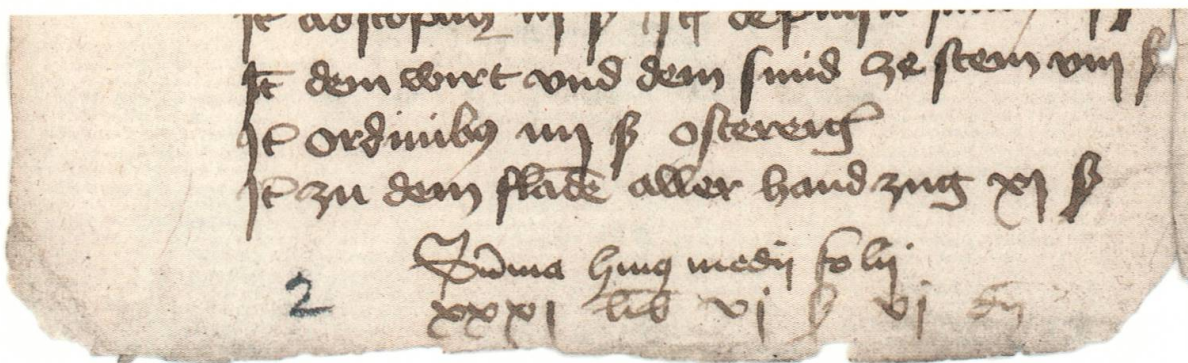 It dem wirt vnd dem smid ze stein viij ß
It ordinibus iiij ß ostereich
It zu dem fladē aller hand zug xj ß
Sūma huius medij folij
2
xxxj lib vj ß vj dn